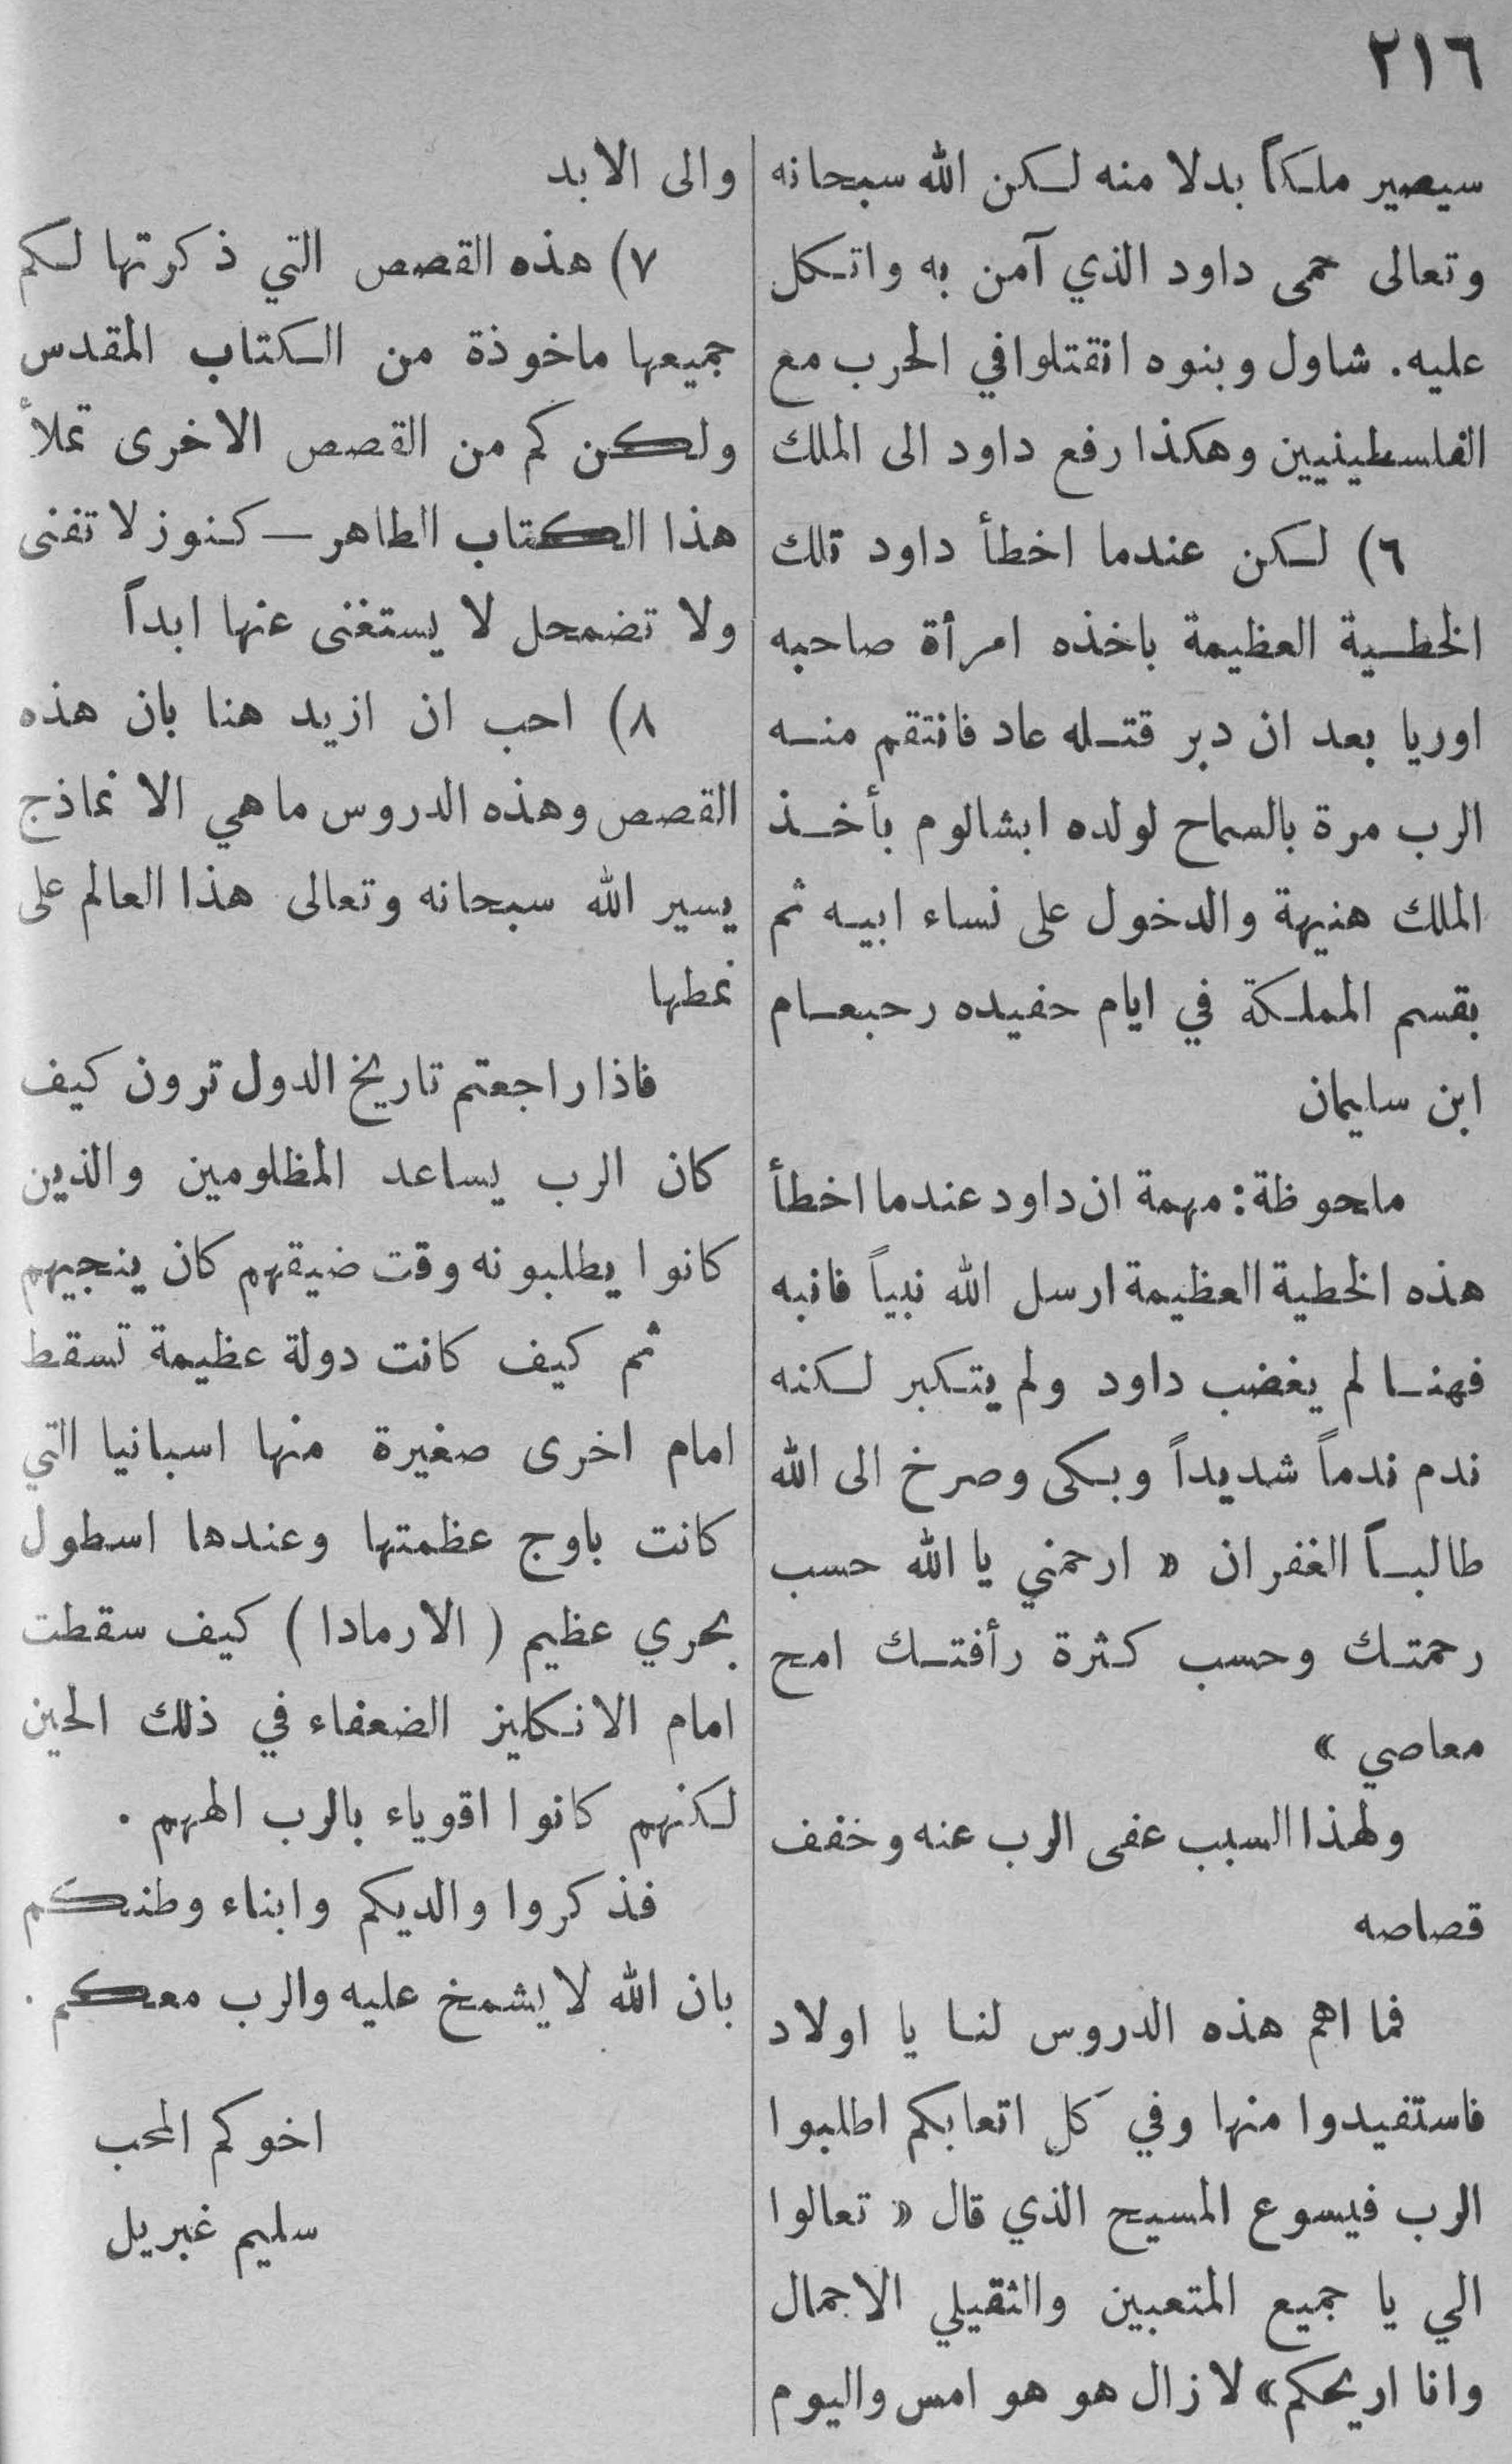 ٢١٦
سيصير ملكاً بدلا منه لكن الله سبحانه
وتعالى حمى داود الذي آمن به واتكل
عليه. شاول وبنوه انقتلوا في الحرب مع
الفلسطينيين وهكذا رفع داود الى الملك
٦) لكن عندما اخطأ داود تلك
الخطية العظيمة باخذه امرأة صاحبه
اوريا بعد ان دبر قتله عاد فانتقم منه
الرب مرة بالسماح لولده ابشالوم بأخذ
الملك هنيهة والدخول على نساء ابيه ثم
بقسم المملكة في ايام حفيده رحبعام
ابن سليمان
ملحوظة: مهمة ان داود عندما اخطأ
هذه الخطية العظيمة ارسل الله نبياً فانبه
فهنا لم يغضب داود ولم يتكبر لكنه
ندم ندماً شديداً وبكى وصرخ الى الله
طالباً الغفران « ارحمني يا الله حسب
رحمتك وحسب كثرة رأفتك امح
معاصي »
ولهذا السبب عفى الرب عنه وخفف
قصاصه
فما اهم هذه الدروس لنا يا اولاد
فاستفيدوا منها وفي كل اتعابكم اطلبوا
الرب فيسوع المسيح الذي قال « تعالوا
الي يا جميع المتعبين والثقيلي الاجمال
وانا اريحكم» لا زال هو هو امس واليوم
والى الابد
٧) هذه القصص التي ذكرتها لكم
جميعها ماخوذة من الكتاب المقدس
ولكن كم من القصص الاخرى تملأ
هذا الكتاب الطاهر — كنوز لا تفنى
ولا تضمحل لا يستغنى عنها ابداً
٨) احب ان ازيد هنا بان هذه
القصص وهذه الدروس ما هي الا نماذج
يسير الله سبحانه وتعالى هذا العالم على
نمطها
فاذا راجعتم تاريخ الدول ترون كيف
كان الرب يساعد المظلومين والذين
كانوا يطلبونه وقت ضيقهم كان ينجيهم
ثم كيف كانت دولة عظيمة تسقط
امام اخرى صغيرة منها اسبانيا التي
كانت باوج عظمتها وعندها اسطول
بحري عظيم ( الارمادا ) كيف سقطت
امام الانكليز الضعفاء في ذلك الحين
لكنهم كانوا اقوياء بالرب الههم .
فذكروا والديكم وابناء وطنكم
بان الله لا يشمخ عليه والرب معكم .
اخوكم المحب
سليم غبريل